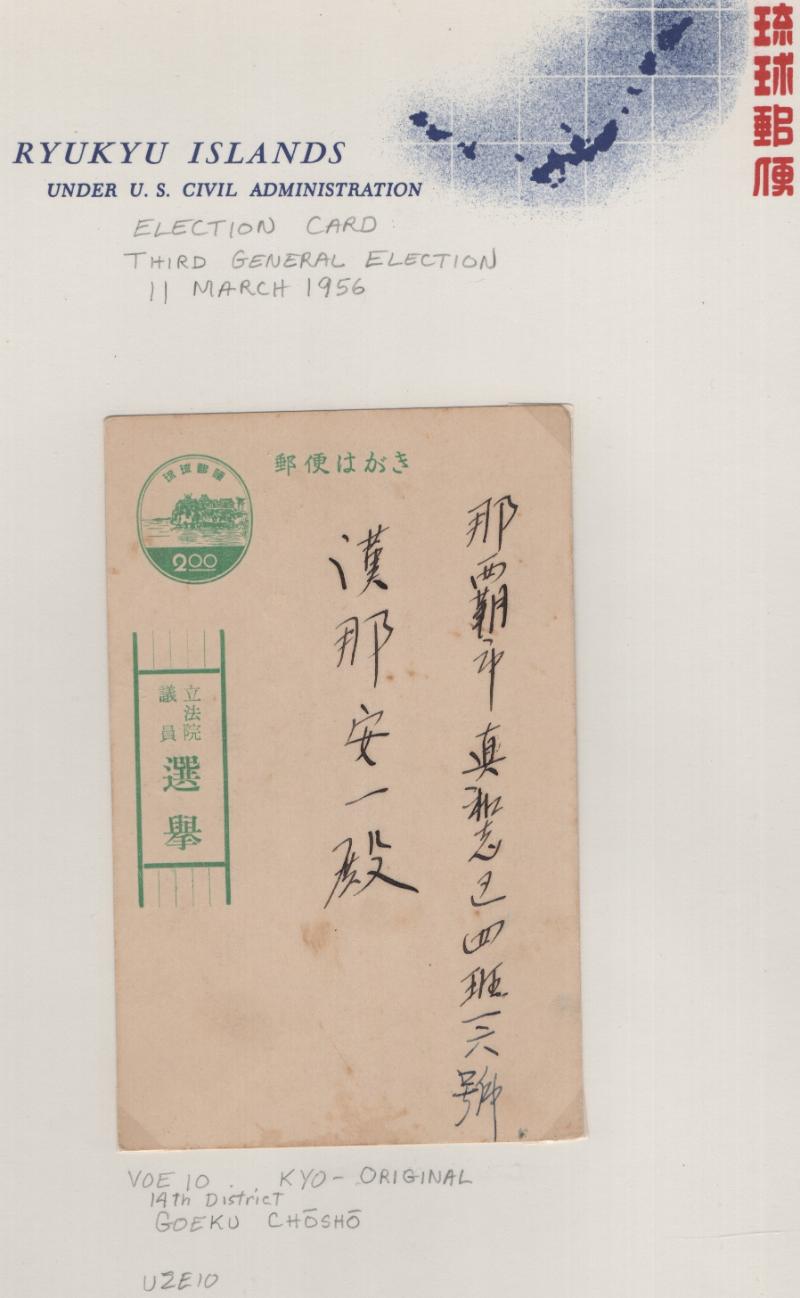 琉球郵便
RYUKYU ISLANDS
UNDER U. S. CIVIL ADMINISTRATION
ELECTION CARD
THIRD GENERAL ELECTION
11 MARCH 1956
琉球郵便
2.00
郵便はがき
那覇市真和志区四班一六號
漢那安一殿
立法院
議員
選擧
VOE 10. KYO- ORIGINAL
14th District
GOEKU CHŌSHŌ
UZE10